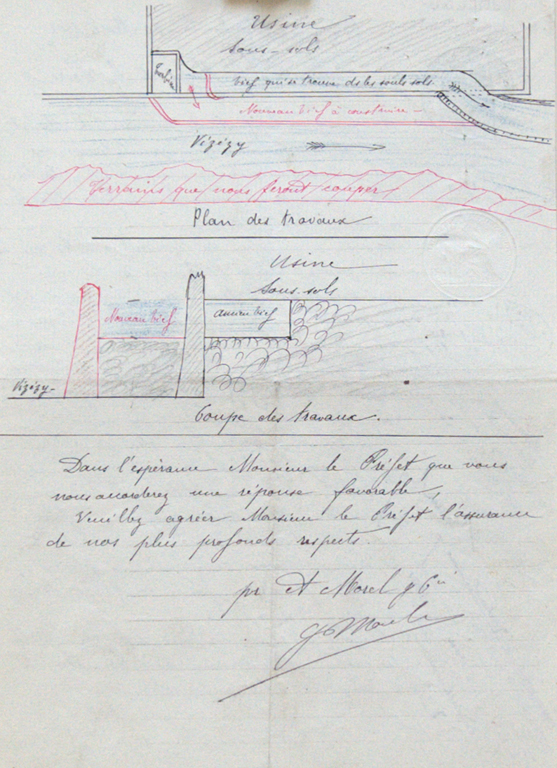 Usine
Sous-sols
bief qui se trouve ds les souls sols
Nouveau bief à construire
Vizézy
Terrains que nous ferons couper
Plan des travaux
Usine
Sous-sols
Nouveau bief
Ancien bief
Vizézy
Coupe des travaux.
Dans l'espérance Monsieur le Préfet que vous
nous accorderez une réponse favorable,
Veuillez agréer Monsieur le Préfet l'assurance
de nos plus profonds respects.
pr A Morel & Cie